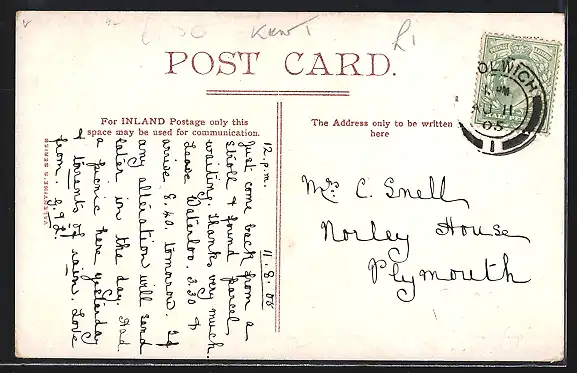 Kent
£1
POST CARD.
For INLAND Postage only this
space may be used for communication.
The Address only to be written
here
OLWICH
AU 11
05
1
12. p.m. 11. 8. 05
Just come back from a
stroll & found parcel
waiting. Thanks very much.
Leave Waterloo. 3.30 &
arrive 8.40. tomorrow. If
any alteration will send
later in the day. Had
a picnic here yesterday
& torrents of rain. Love
from.
Mrs C. Snell
Norley House
Plymouth
VALENTINE'S SERIES